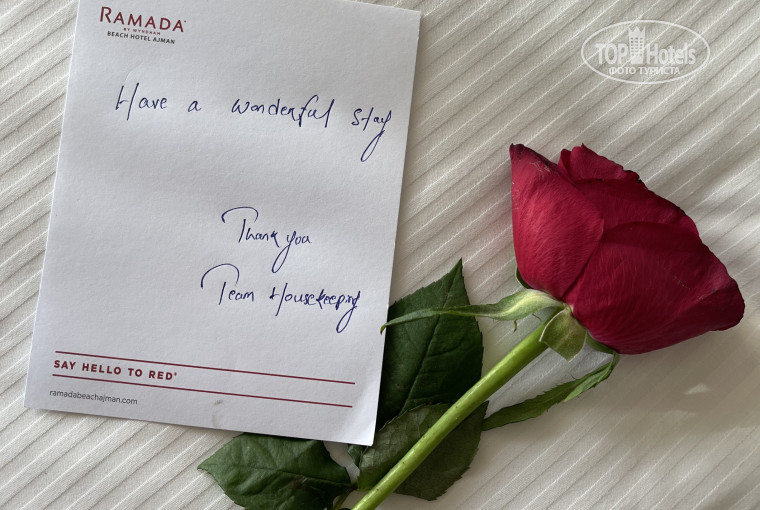 RAMADA®
BY WYNDHAM
BEACH HOTEL AJMAN
Have a wonderful stay
Thank you
Team Housekeeping
SAY HELLO TO RED®
ramadabeachajman.com
TOPHotels
ФОТО ТУРИСТА